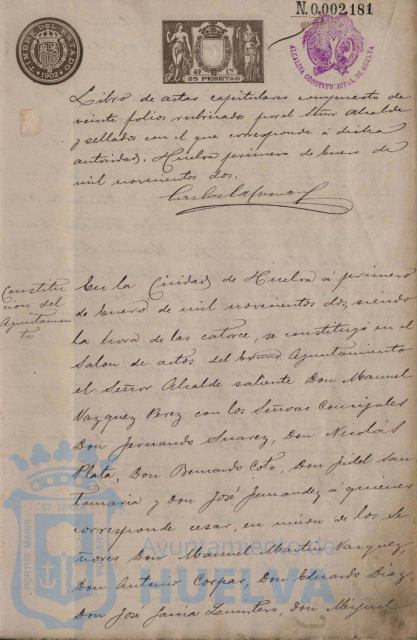 TIMBRE DEL ESTADO
1902
25 PESETAS
N.0,002,181
ALCALDIA CONSTITUCIONAL DE HUELVA
Libro de actas capitulares compuesto de
veinte folios rubricados por el Señor Alcalde
y sellados con el que corresponde á dicha
autoridad. Huelva primero de Enero de
mil novecientos dos.
Constitu
cion del
Ayuntamien
to
En la Ciudad de Huelva á primero
de Enero de mil novecientos dos, siendo
la hora de las catorce, se constituyó en el
Salon de actos del Ayuntamiento
el Señor Alcalde saliente Don Manuel
Vazquez Perez con los Señores Concejales
Don Fernando Suarez, Don Nicolás
Plata, Don Bernardo Coto, Don Fidel San
tamaria y Don José Fernandez á quienes
corresponde cesar, en union de los Se
ñores Don Manuel Martin Vazquez,
Don Antonio Corpas, Don Eduardo Diaz,
Don José Garcia Quintero, Don Miguel
PORTUS MARIS ET TERRAE
Ayuntamiento de
HUELVA